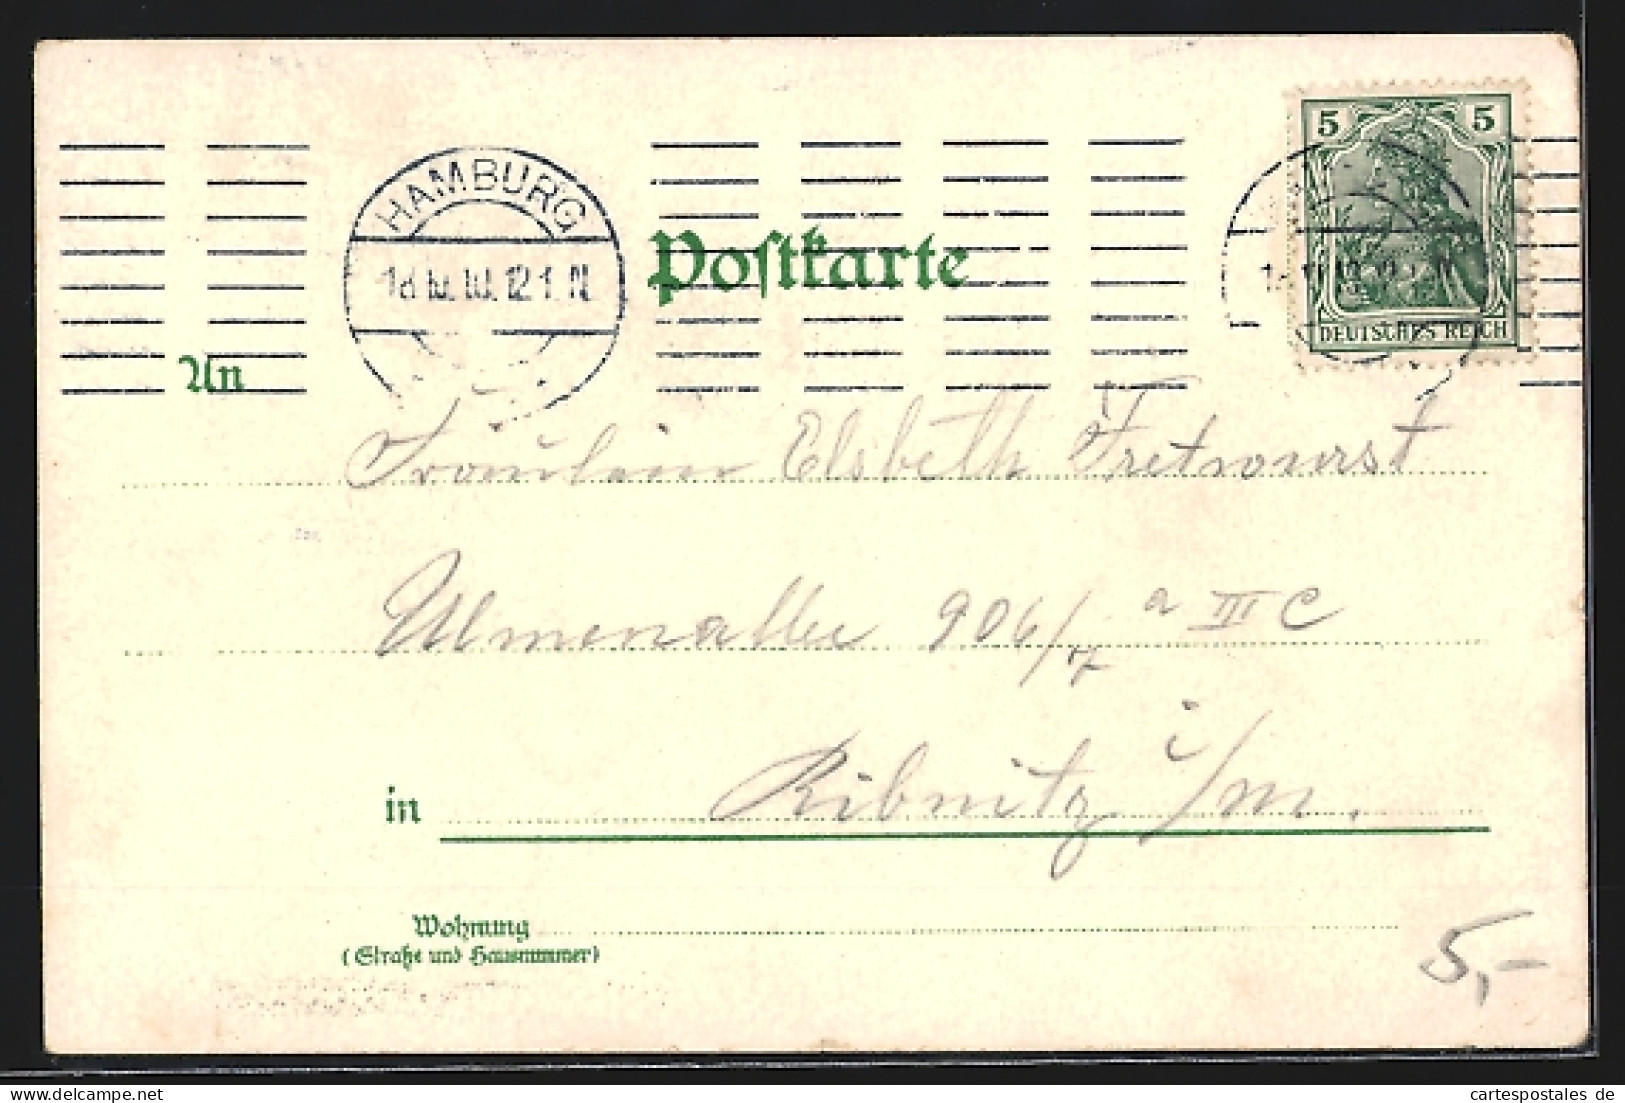 HAMBURG
12 1. N
Postkarte
5 5
DEUTSCHES REICH
An
Fräulein Elsbeth Fretwurst
Ulmenallee 906/7 a III C
in Ribnitz i/M.
Wohnung
(Straße und Hausnummer)
5,-
cartespostales de